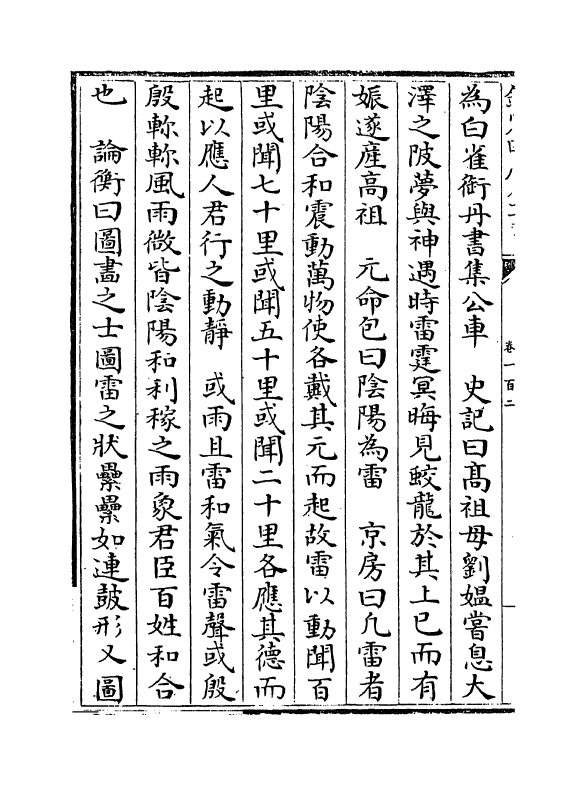 為白雀銜丹書集公車　史記曰髙祖母劉媪嘗息大
澤之陂夢與神遇時雷霆冥晦見蛟龍於其上已而有
娠遂産高祖　元命包曰陰陽為雷　京房曰凡雷者
陰陽合和震動萬物使各戴其元而起故雷以動聞百
里或聞七十里或聞五十里或聞二十里各應其德而
起以應人君行之動靜　或雨且雷和氣令雷聲或殷
殷軫軫風雨微皆陰陽和利稼之雨象君臣百姓和合
也　論衡曰圖畫之士圖雷之狀纍纍如連鼓形又圖
卷一百二